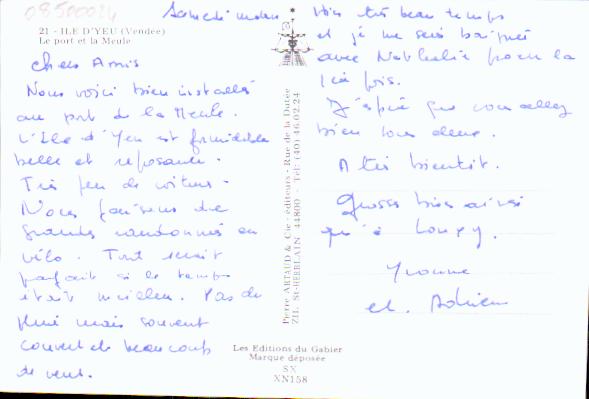 08500024
21 - ILE D'YEU (Vendée)
Le port et la Meule
Samedi matin
Chers Amis
Nous voici bien installés
au port de la Meule.
L'Ile d'Yeu est formidable
belle et reposante.
Très peu de voitures.
Nous faisons de
grandes randonnées en
vélo. Tout serait
parfait si le temps
était meilleur. Pas de
pluie mais souvent
couvert et beaucoup
de vent.
Pierre ARTAUD & Cie - éditeurs - Rue de la Dutée
ZIL St-HERBLAIN 44800 - Tél. (40) 46.02.24
Hier très beau temps
et je me suis baignée
avec Nathalie pour la
1ère fois.
J'espère que vous allez
bien tous deux.
A très bientôt.
Grosses bises ainsi
qu'à
Yvonne
et Adrien
Les Editions du Gabier
Marque déposée
SX
XN158